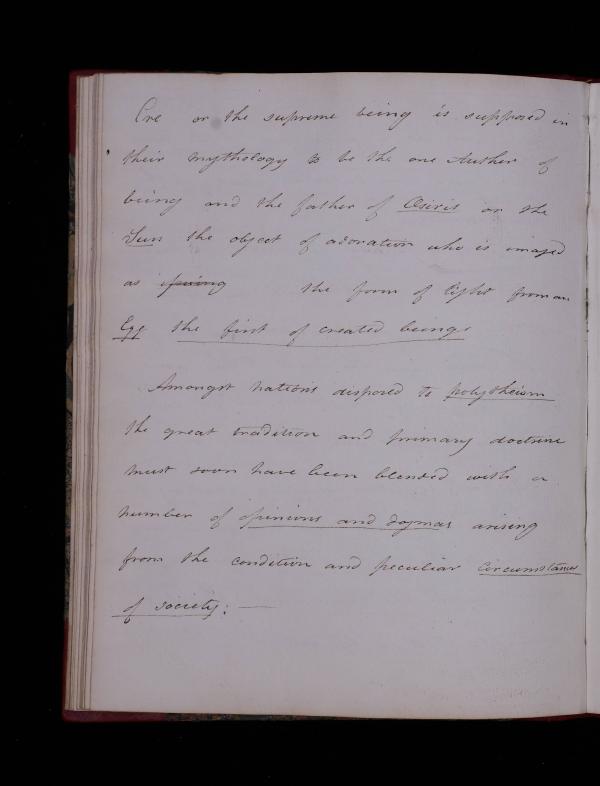 or the supreme being is supposed in
their mythology to be the one Author of
being and the father of Osiris or the
Sun the object of adoration who is imaged
as the form of light from an
Egg the first of created beings
Amongst nations disposed to polytheism
the great tradition and primary doctrine
must soon have been blended with a
number of opinions and dogmas arising
from the condition and peculiar circumstances
of society: —